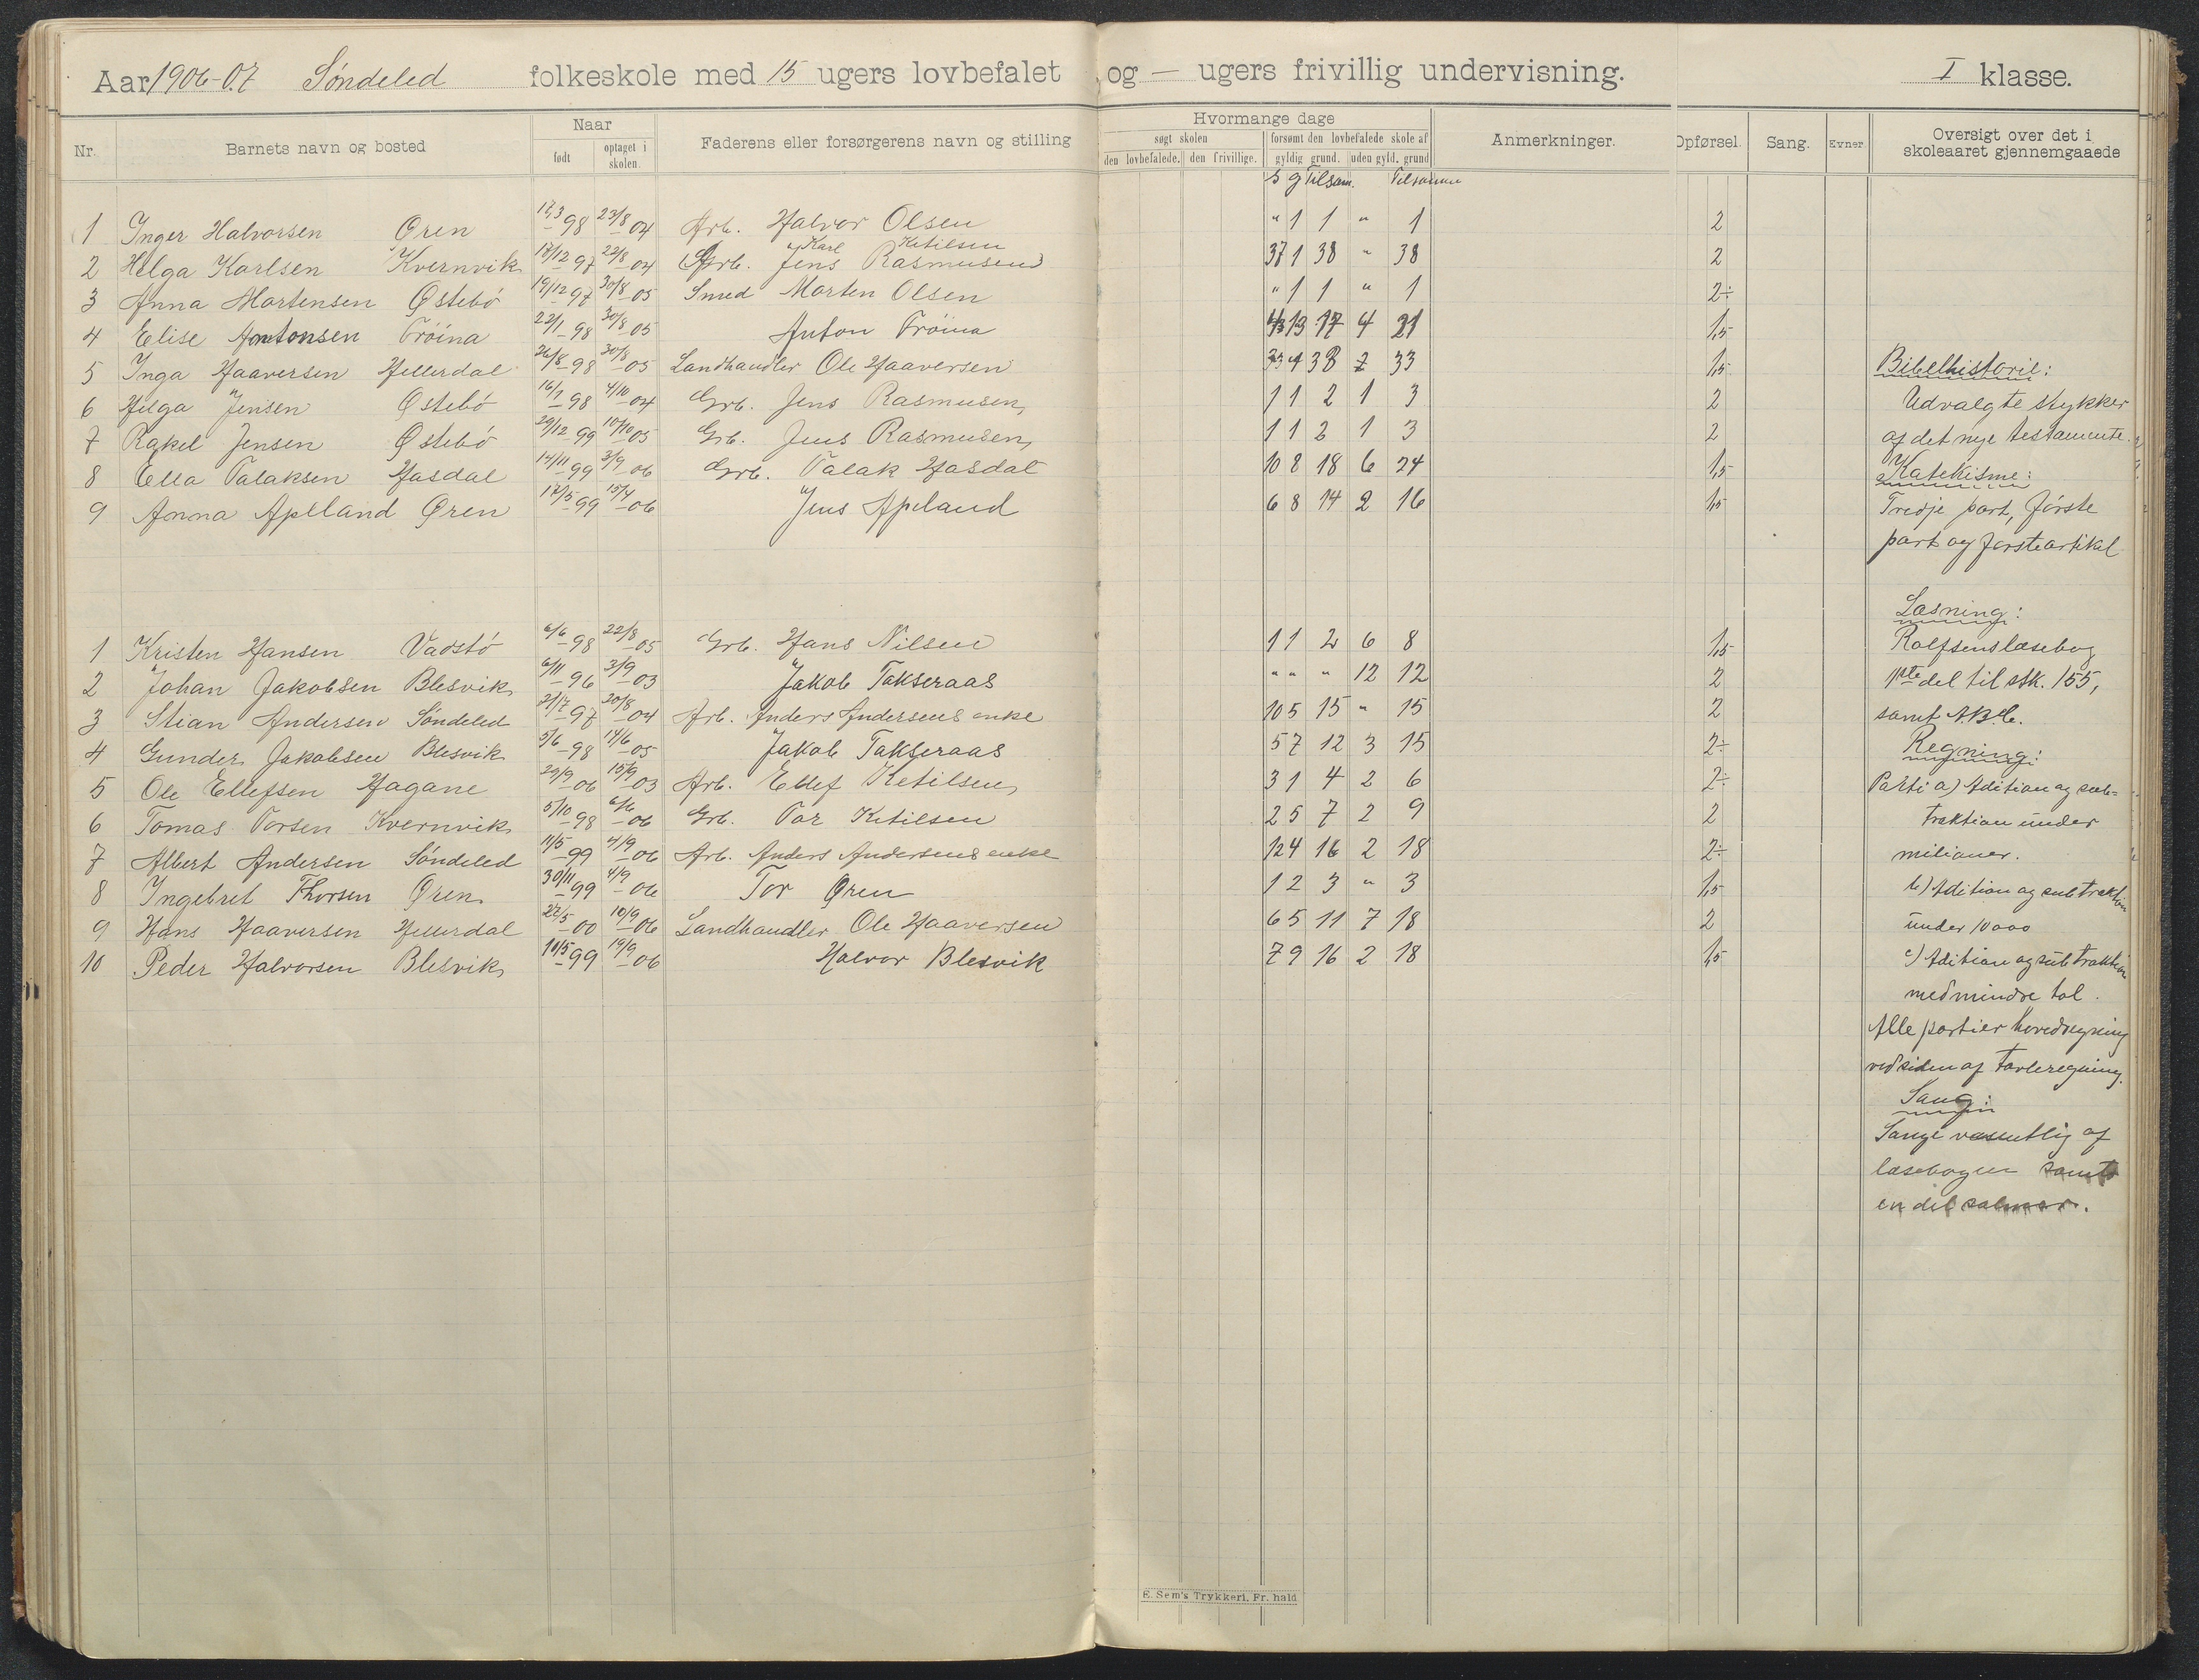 Aar 1906-07 Søndeled folkeskole med 15 ugers lovbefalet og — ugers frivillig undervisning. I klasse.
Nr. Barnets navn og bosted Naar født optaget i skolen. Faderens eller forsørgerens navn og stilling Hvormange dage søgt skolen den lovbefalede. den frivillige. forsømt den lovbefalede skole af gyldig grund. uden gyld. grund Anmerkninger. Opførsel. Sang. Evner Oversigt over det i skoleaaret gjennemgaaede
S g Tilsam. Tilsamm
1 Inger Halvorsen Øren 17/3 – 98 23/8 – 04 Arb. Halvor Olsen " 1 1 " 1 2
Karl Ketilsen
2 Helga Karlsen Kvernvik 18/12 – 97 22/8 – 04 Grb. Jens Rasmusen 37 1 38 " 38 2
3 Anna Mortensen Østebö 19/12 97 30/8 – 05 Smed Morten Olsen " 1 1 " 1 2÷
4 Elise Antonsen Tröina 22/1 – 98 30/8 – 05 Anton Tröina 4 13 17 4 21 1,5
5 Inga Haaversen Hellerdal 26/8 – 98 30/8 – 05 Landhandler Ole Haaversen 7 33 1,5
6 Helga Jensen Østebö 16/7 – 98 4/10 – 04 Grb. Jens Rasmusen 1 1 2 1 3 2
7 Rakel Jensen Østebö 29/12 99 10/10 05 Grb. Jens Rasmusen 1 1 2 1 3 2
8 Ella Talaksen Hasdal 14/11 – 99 3/9 – 06 Grb. Talak Hasdal 10 8 18 6 24 1,5
9 Anna Apelland Øren 17/5 – 99 15/4 – 06 Jens Apeland 6 8 14 2 16 1,5
1 Kristen Hansen Vadstö 6/6 – 98 22/8 – 05 Grb. Hans Nilsen 1 1 2 6 8 1,5
2 Johan Jakobsen Blesvik 6/11 – 96 3/9 – 03 Jakob Takseraas " " " 12 12 2
3 Stian Andersen Söndeled 21/7 – 97 20/8 – 04 Arb. Anders Andersens enke 10 5 15 " 15 2
4 Gunder Jakobsen Blesvik 5/6 – 98 14/6 – 05 Jakob Takseraas 5 7 12 3 15 2÷
5 Ole Ellefsen Hagane 29/9 – 06 15/9 – 03 Arb. Ellef Ketilsen 3 1 4 2 6 2÷
6 Tomas Torsen Kvernvik 5/10 – 98 6/6 – 06 Grb. Tor Ketilsen 2 5 7 2 9 2
7 Albert Andersen Söndeled 11/5 – 99 4/9 – 06 Arb. Anders Andersens enke 12 4 16 2 18 2÷
8 Ingebret Thorsen Øren 30/11 – 99 4/9 – 06 Tor Øren 1 2 3 " 3 1,5
9 Hans Haaversen Hellerdal 22/5 – 00 10/9 – 06 Landhandler Ole Haaversen 6 5 11 7 18 2
10 Peder Halvorsen Blesvik 10/5 99 19/9 – 06 Halvor Blesvik 7 9 16 2 18 1,5
Bibelhistorie:
Udvalgte stykker
af det nye testamente.
Katekisme:
Tredje part, første
part og første artikel
Læsning:
Rolfsens læsebog
1ste del til stk. 155,
samt A.B.C.
Regning:
Parti a) Adition og sub-
traktion under
milioner.
b) Adition og subtraktion
under 10000
c) Adition og subtraktion
med mindre tal.
Alle partier hovedregning
ved siden af tavleregning.
Sang:
Sange væsentlig af
læsebogen samt
en del salmer.
E. Sem's Trykkeri, Fr. hald